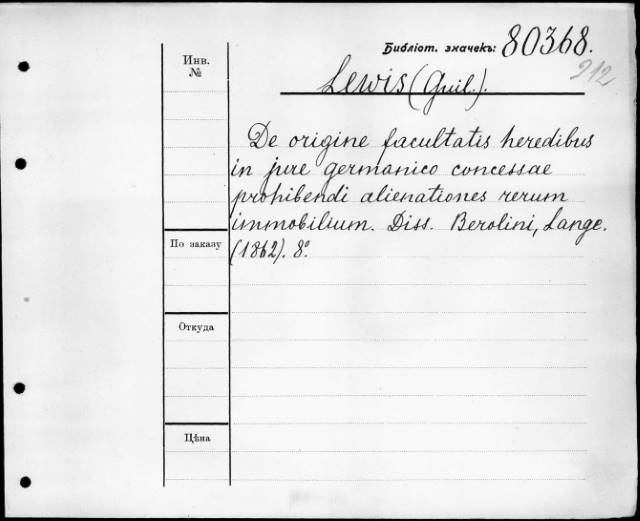 Библіот. значекъ: 80368.
912
Инв.
№
Lewis (Guil.).
De origine facultatis heredibus
in jure germanico concessae
prohibendi alienationes rerum
immobilium. Diss. Berolini, Lange.
(1862). 8°.
По заказу
Откуда
Цѣна